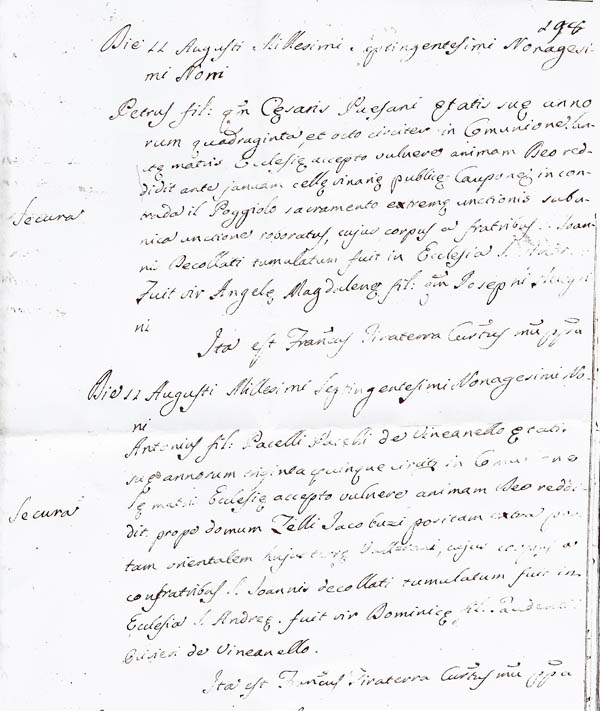 Die 11 Augusti Millesimi Septingentesimi Nonagesi-
mi Noni
Petrus fil: qm Cęsaris Paesani ętatis suę anno
rum quadraginta, et octo circiter in Comunione San-
ctę matris Ecclesię accepto vulnere animam Deo red-
didit ante januam cellę vinarię publicę Cauponę in con-
Secura
trada il Poggiolo sacramento extremę unctionis subu-
nica unctione roboratus, cujus corpus a fratribus S. Joan-
nis Decollati tumulatum fuit in Ecclesia S.
Fuit vir Angelę Magdalenę fil: qm Josephi
ni
Ita est Francus Piraterra Curtus mu ppra
Die 11 Augusti Millesimi Septingentesimi Nonagesimi No-
ni
Antonius fil: Pacelli Pacelli de Vineanello ętatis
suę annorum triginta quinque circiter in Comunione
Sę matris Ecclesię accepto vulnere animam Deo reddi-
Secura
dit prope domum Zelli Jacobuzi positam extra por-
tam orientalem hujus terrę cujus corpus a
confratribus S. Joannis decollati tumulatum fuit in
Ecclesia S. Andreę. fuit vir Dominicę fil:
de Vineanello.
Ita est Francus Piraterra Curtus mu ppra